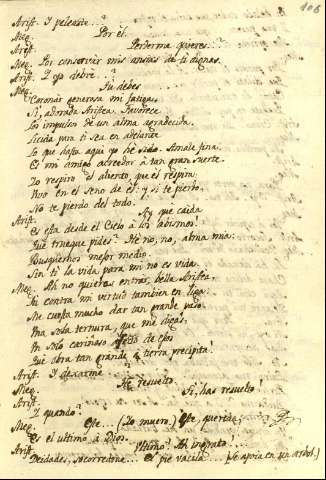 106
Arist. Y peleaste...
Meg. Por él.
Arist. Perderme quieres...
Meg. Por conservar mis ansias de ti dignas.
Arist. Y yo debre...?
Meg. Tu debes
Coronar generosa mi fatiga.
Si, adorada Aristea, favorece
Los impulsos de un alma agradecida.
Licida para ti sea en adelante
Lo que hasta aqui yo hé sido. Amale fina.
Es mi amigo acreedor à tan gran suerte.
Yo respiro el aliento, que él respira:
Vivo en el seno de él: y si te pierdo,
No te pierdo del todo.
Arist. Ay que caida
Es esta desde el Cielo à los abismos!
Qué trueque pides? Hé no, no, alma mia:
Busquemos mejor medio.
Sin ti la vida para mi no es vida.
Meg. Ah no quieras entrar, bella Aristea,
En contra mi virtud tambien en liga.
Me cuesta mucho dar tan grande paso.
Una sola ternura, que me digas,
Un solo cariñoso de esos
Qué obra tan grande à tierra precipita!
Arist. Y dexarme...
Meg. Hé resuelto.
Arist. Si, has resuelto!
Y quando?
Meg. Este... (Yo muero) Este, querida,
Es el ultimo à Dios.
Arist. Ultimo? Ah ingrato!...
Deidades, socorredme... El pie vacila. (Se apoya en un arbol.)